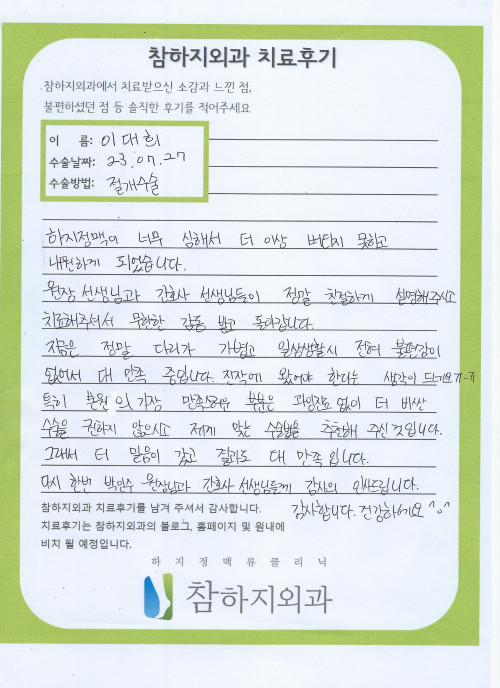 참하지외과 치료후기
참하지외과에서 치료받으신 소감과 느낀 점,
불편하셨던 점 등 솔직한 후기를 적어주세요
이 름: 이대희
수술날짜: 23.07.27
수술방법: 절개수술
하지정맥이 너무 심해서 더 이상 버티지 못하고
내원하게 되었습니다.
원장 선생님과 간호사 선생님들이 정말 친절하게 설명해주시고
치료해주셔서 무한한 감동 받고 돌아갑니다.
지금은 정말 다리가 가볍고 일상생활시 전혀 불편감이
없어서 대 만족 중입니다. 진작에 왔어야 한다는 생각이 드네요ㅠㅠ
특히 본원의 가장 만족스러운 부분은 과잉진료 없이 더 비싼
수술을 권하지 않으시고 제게 맞는 수술법을 추천해 주신 것입니다.
그래서 더 믿음이 갔고 결과도 대 만족입니다.
다시 한번 박인수 원장님과 간호사 선생님들께 감사의 인사드립니다.
감사합니다. 건강하세요 ^o^
참하지외과 치료후기를 남겨 주셔서 감사합니다.
치료후기는 참하지외과의 블로그, 홈페이지 및 원내에
비치 될 예정입니다.
하지정맥류클리닉
참하지외과